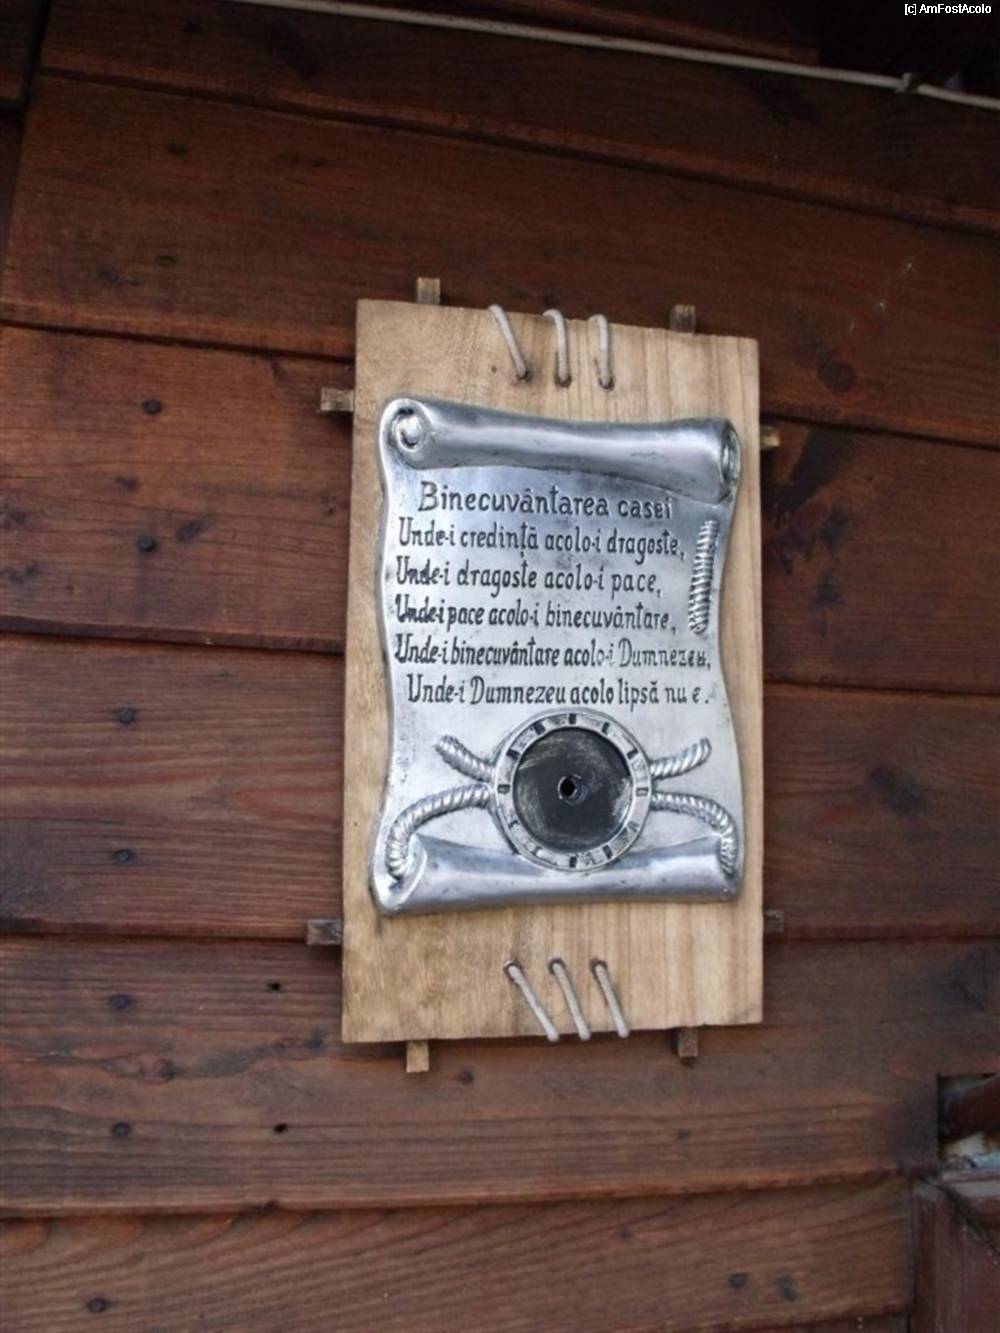 [c] AmFostAcolo
Binecuvântarea casei
Unde-i credință acolo-i dragoste,
Unde-i dragoste acolo-i pace,
Unde-i pace acolo-i binecuvântare,
Unde-i binecuvântare acolo-i Dumnezeu,
Unde-i Dumnezeu acolo lipsă nu e.